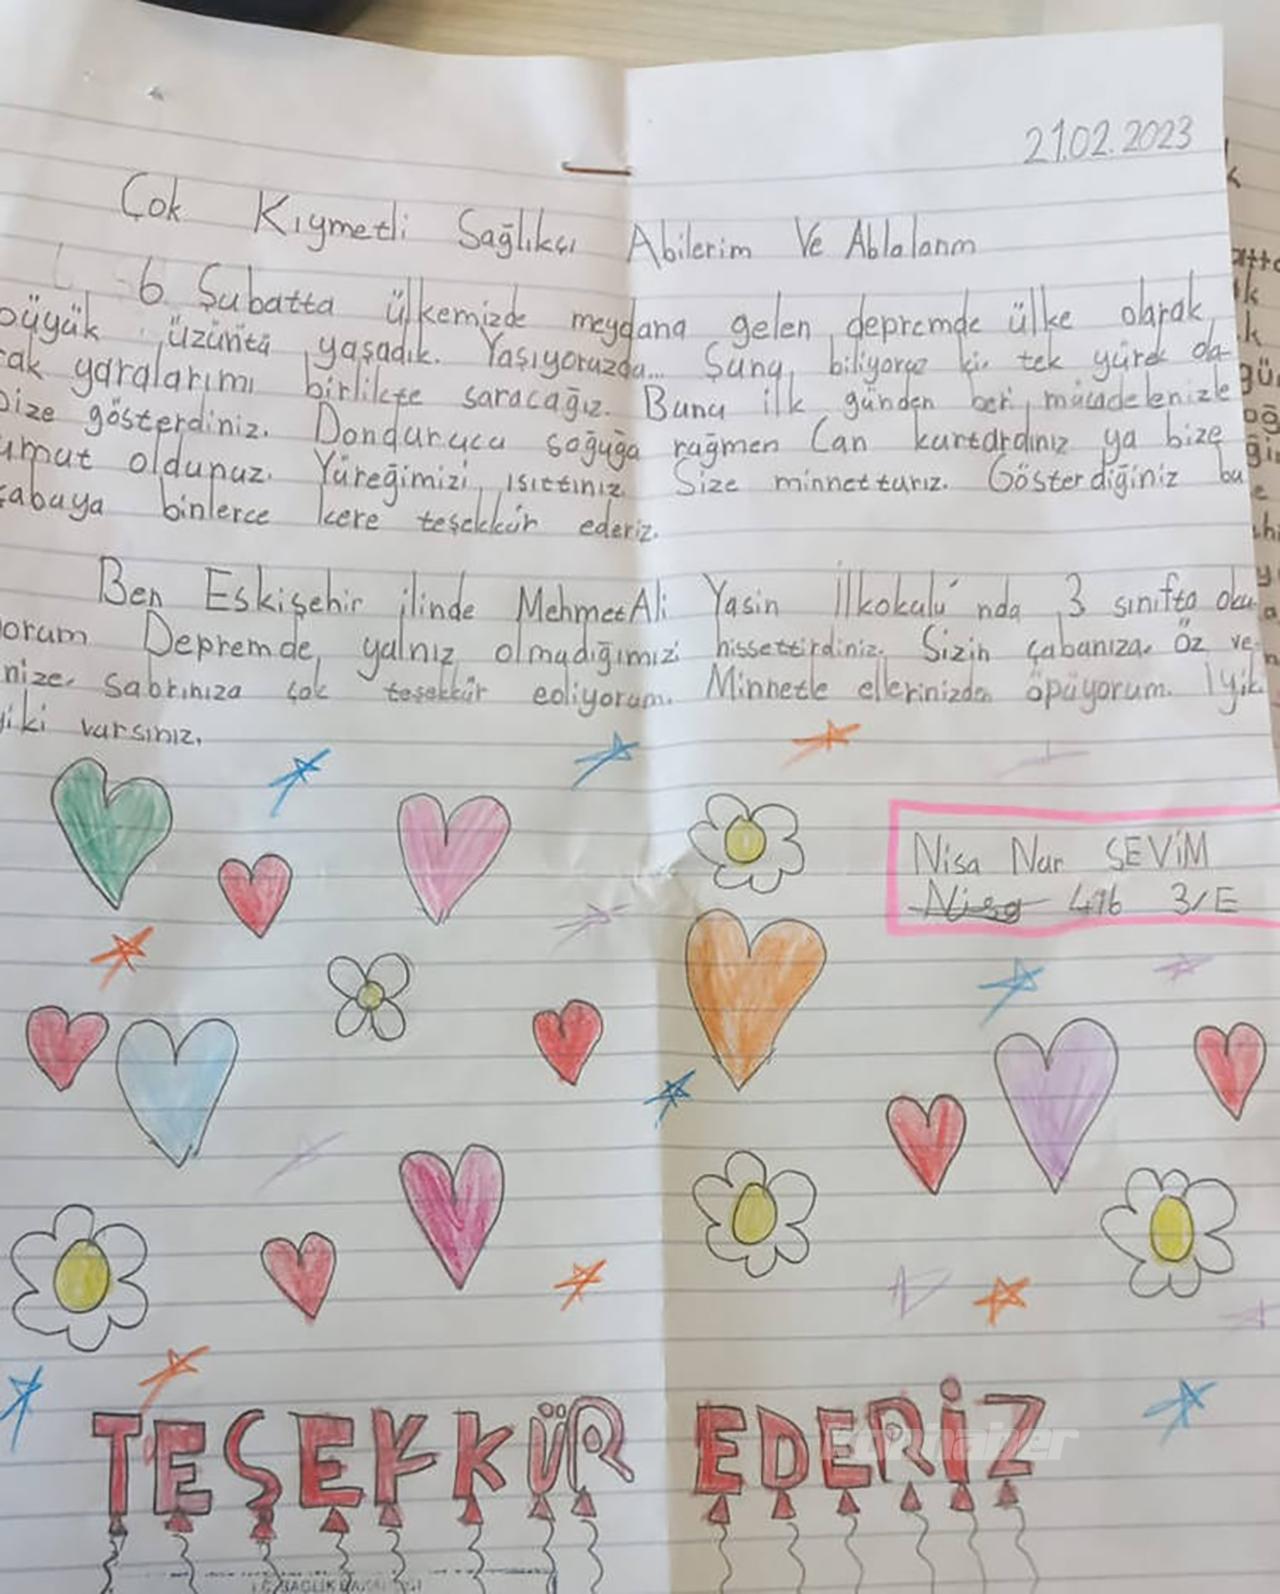 21.02.2023
Çok Kıymetli Sağlıkçı Abilerim Ve Ablalarım
6 Şubatta ülkemizde meydana gelen depremde ülke olarak
büyük üzüntü yaşadık. Yaşıyoruzda... Şunu biliyoruz ki tek yürek ola-
rak yaralarımı birlikte saracağız. Bunu ilk günden beri mücadelenizle
bize gösterdiniz. Dondurucu soğuğa rağmen Can kurtardınız ya bize
umut oldunuz. Yüreğimizi ısıttınız. Size minnettarız. Gösterdiğiniz bu
çabaya binlerce kere teşekkür ederiz.
Ben Eskişehir ilinde Mehmet Ali Yasin İlkokulu'nda 3 sınıfta oku
orum Depremde yalnız olmadığımızı hissettirdiniz. Sizin çabanıza Öz ve-
nize. Sabrınıza çok teşekkür ediyorum. Minnetle ellerinizden öpüyorum. İyik
iyiki varsınız.
Nisa Nur SEVİM
Nisa 416 3/E
TEŞEKKÜR EDERİZ
T.C. SAĞLIK BAKANLIĞI